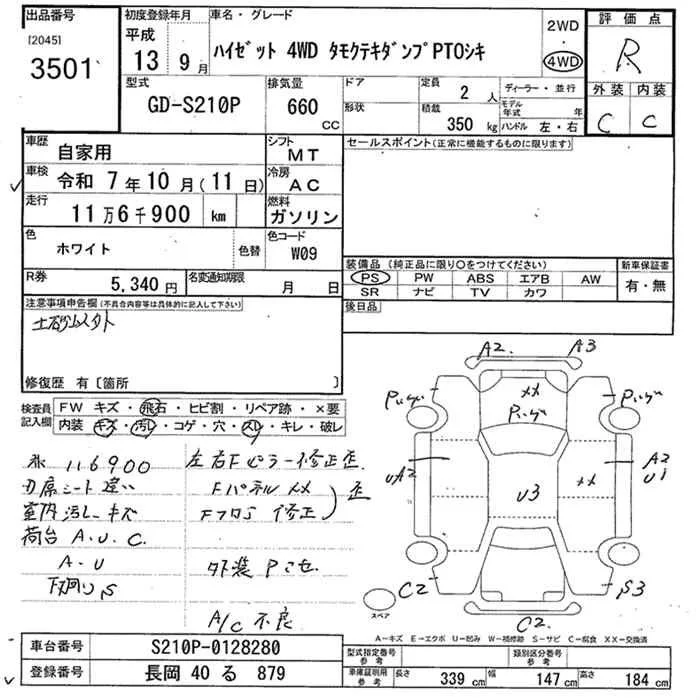 出品番号
[2045]
3501
初度登録年月
平成
13 9月
車名・グレード
ハイゼット 4WD タモクテキダンプPTOシキ
2WD
・
4WD
評価点
R
外装 内装
C C
型式
GD-S210P
排気量
660
CC
ドア
形状
定員
2人
積載
350 kg
ディーラー・並行
モデル年式 年
ハンドル 左・右
車歴
自家用
シフト
MT
車検
令和 7年10月(11日)
冷房
AC
走行
11万6千900 km
燃料
ガソリン
色
ホワイト
色替
色コード
W09
R券
5,340円
名変通知期限
月 日
セールスポイント(正常に機能するものに限ります)
装備品 (純正品に限り○をつけてください)
PS PW ABS エアB AW
SR ナビ TV カワ
新車保証書
有・無
後日品
注意事項申告欄(不具合内容等は具体的に記入して下さい)
修復歴 有〔箇所 〕
検査員記入欄
FW キズ・飛石・ヒビ割・リペア跡・×要
内装 キズ・汚レ・コゲ・穴・スレ・キレ・破レ
116900
左右Fピラー修正歪
刃席シート違い
Fパネルメメ
歪
室内汚レキズ
修正
荷台 A.U.C.
A.U
外装Pミセ
下廻りS
A/C不良
A2. A3
××
U3
UA2
××
A2
U1
C2
S3
C2
スペア
A-キズ E-エクボ U-凹み W-補修跡 S-サビ C-腐食 XX-交換済
車台番号
S210P-0128280
登録番号
長岡 40 る 879
型式指定番号
参考
類別区分番号
参考
車庫証明用
参考
長さ 339 cm
幅 147 cm
高さ 184 cm